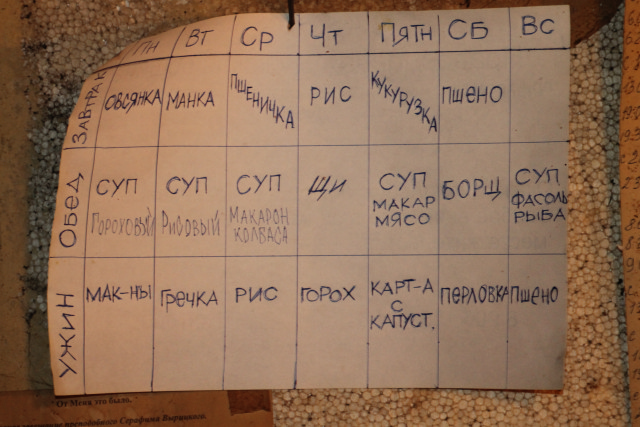 ПН ВТ СР ЧТ ПЯТН СБ ВС
ЗАВТРАК ОВСЯНКА МАНКА ПШЕНИЧКА РИС КУКУРУЗКА ПШЕНО
ОБЕД СУП СУП СУП ЩИ СУП БОРЩ СУП
ГОРОХОВЫЙ РИСОВЫЙ МАКАРОН МАКАР ФАСОЛЬ
КОЛБАСА МЯСО РЫБА
УЖИН МАК-НЫ ГРЕЧКА РИС ГОРОХ КАРТ-А ПЕРЛОВКА ПШЕНО
С
КАПУСТ.
От Меня это было.
преподобного Серафима Вырицкого.